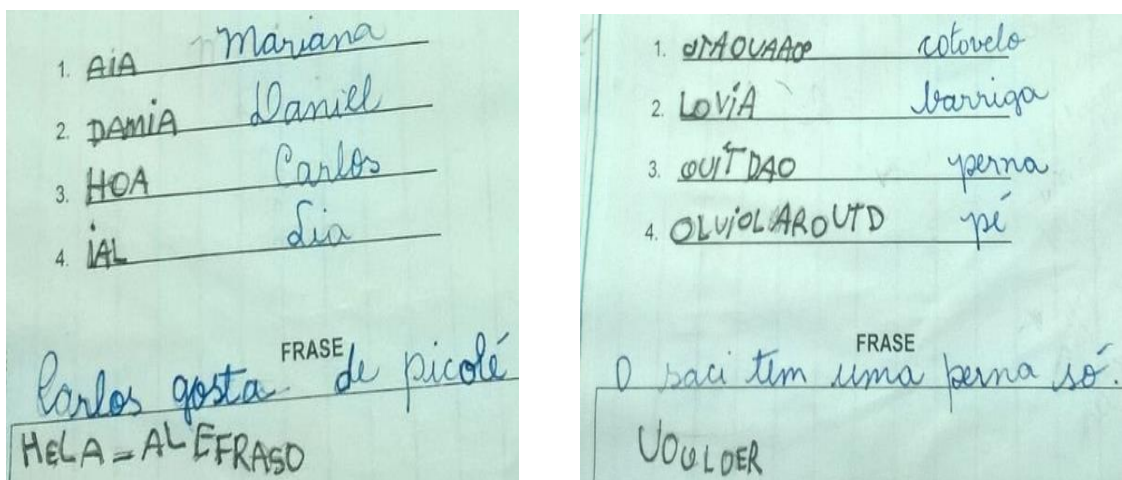 1. AIA Mariana
2. DAMIA Daniel
3. HOA Carlos
4. IAL Lia
FRASE
Carlos gosta de picolé
HELA = ALEFRASO
1. cotovelo
2. LOVIA barriga
3. QUITDAO perna
4. OLVIOLAROUTD pé
FRASE
O saci tem uma perna só.
UOULOER